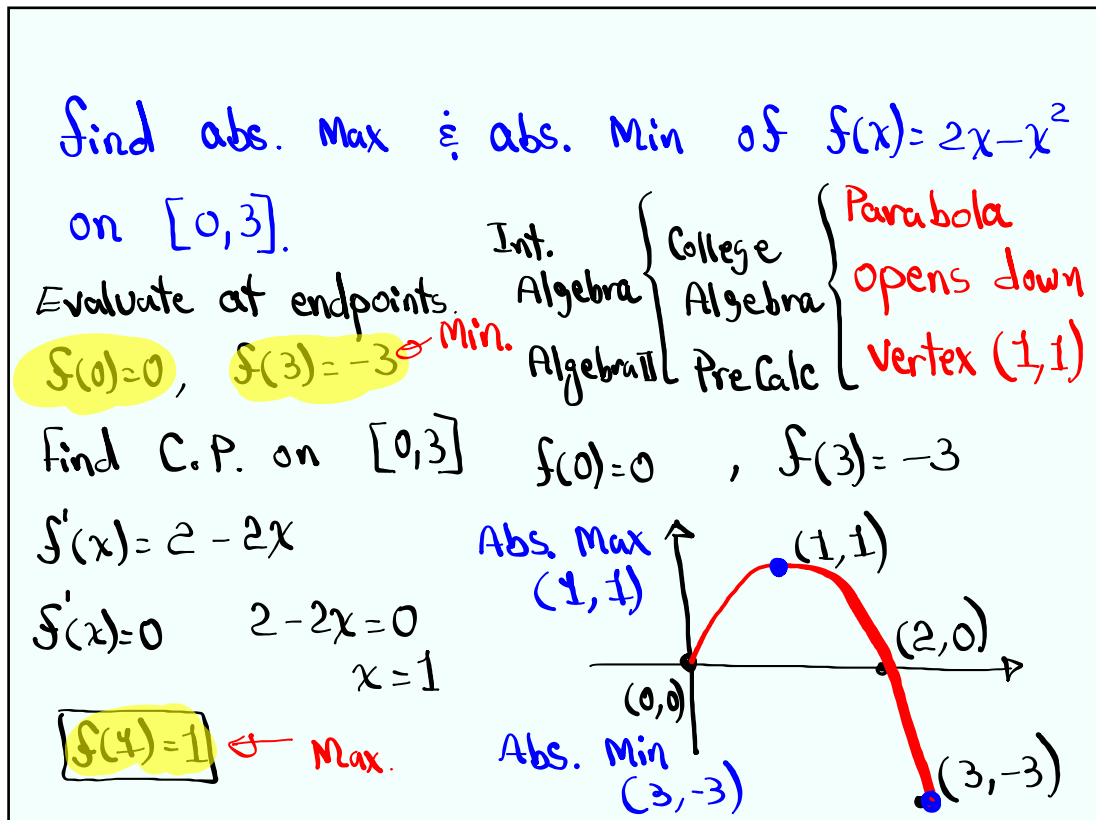 find abs. Max & abs. Min of f(x)=2x-x²
on [0,3].
Evaluate at endpoints.
f(0)=0, f(3)=-3 Min.
Int. Algebra
Algebra II
College Algebra
PreCalc
Parabola
opens down
Vertex (1,1)
Find C.P. on [0,3]
f'(x)=2-2x
f'(x)=0 2-2x=0
x=1
f(1)=1 Max.
f(0)=0, f(3)=-3
Abs. Max
(1,1)
(1,1)
(2,0)
(0,0)
Abs. Min
(3,-3)
(3,-3)